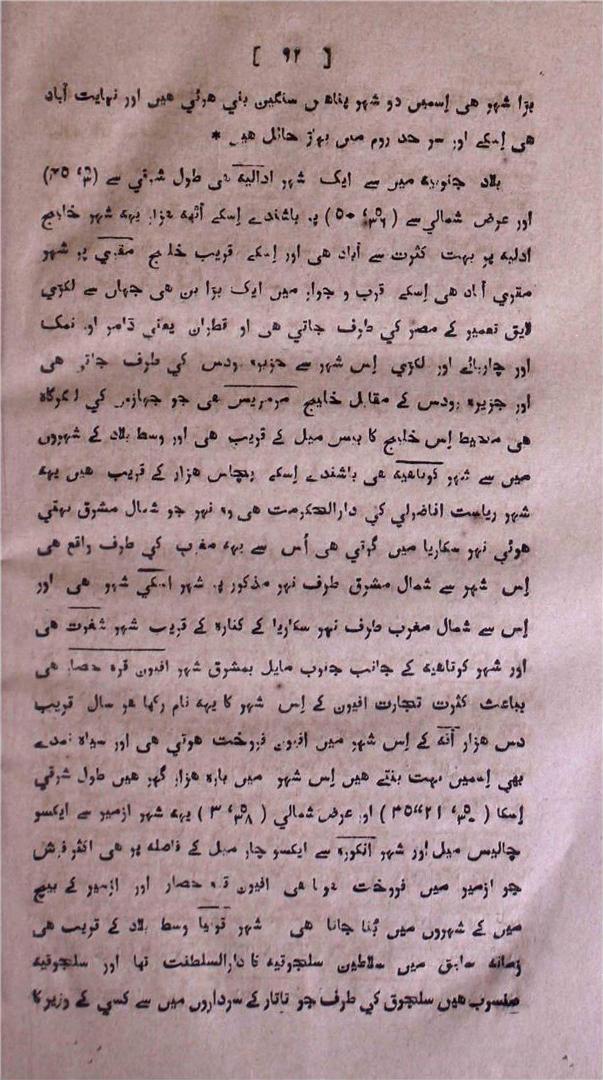 [ ۹۲ ]
بڑا شہر ھی اِسمیں دو شہر پناھیں سنگین بنی ھوئی ھیں اور نہایت آباد
ھی اِسکے اور سرحد روم میں پہاڑ حائل ھیں *
بلاد جنوبیہ میں سے ایک شہر ادالیہ ھی طول شرقی سے
اور عرض شمالی سے پر باشندے اِسکے آٹھہ ھزار یہہ شہر خلیج
ادلیہ پر بہت کثرت سے آباد ھی اور اِسکے قریب خلیج مقری پر شہر
مقری آباد ھی اِسکے قرب و جوار میں ایک بڑا بن ھی جہاں سے لکڑی
لایق تعمیر کے مصر کی طرف جاتی ھی اور قطران یعنی ڈامر اور نمک
اور چارپائے اور لکڑی اِس شہر سے جزیرہ رودس کی طرف جاتی ھی
اور جزیرہ رودس کے مقابل خلیج مرمریس ھی جو جہازوں کی لنگرگاہ
ھی محیط اِس خلیج کا بیس میل کے قریب ھی اور وسط بلاد کے شہروں
میں سے شہر کوتاھیہ ھی باشندے اِسکے پچاس ھزار کے قریب ھیں یہہ
شہر ریاست اناضولی کی دارالحکومت ھی وہ نہر جو شمال مشرق بہتی
ھوئی نہر سکاریا میں گرتی ھی اُس سے یہہ مغرب کی طرف واقع ھی
اِس شہر سے شمال مشرق طرف نہر مذکور پر شہر اسکی شہر ھی اور
اِس سے شمال مغرب طرف نہر سکاریا کے کنارہ کے قریب شہر شغرت ھی
اور شہر کوتاھیہ کے جانب جنوب مایل بمشرق شہر افیون قرہ حصار ھی
بباعث کثرت تجارت افیون کے اِس شہر کا یہہ نام رکھا ھر سال قریب
دس ھزار آنہ کے اِس شہر میں افیون فروخت ھوتی ھی اور سیاہ نمدے
بھی اِسمیں بہت بنتے ھیں اِس شہر میں بارہ ھزار گھر ھیں طول شرقی
اِسکا اور عرض شمالی یہہ شہر ازمیر سے ایکسو
چالیس میل اور شہر انکورہ سے ایکسو چار میل کے فاصلہ پر ھی اکثر فرش
جو ازمیر میں فروخت ھوتا ھی افیون قرہ حصار اور ازمیر کے بیچ
میں کے شہروں میں بُنا جاتا ھی شہر قونیا وسط بلاد کے قریب ھی
زمانہ سابق میں سلاطین سلجوقیہ کا دارالسلطنت تھا اور سلجوقیہ
منسوب ھیں سلجوق کی طرف جو تاتار کے سرداروں میں سے کسی کے وزیر کا